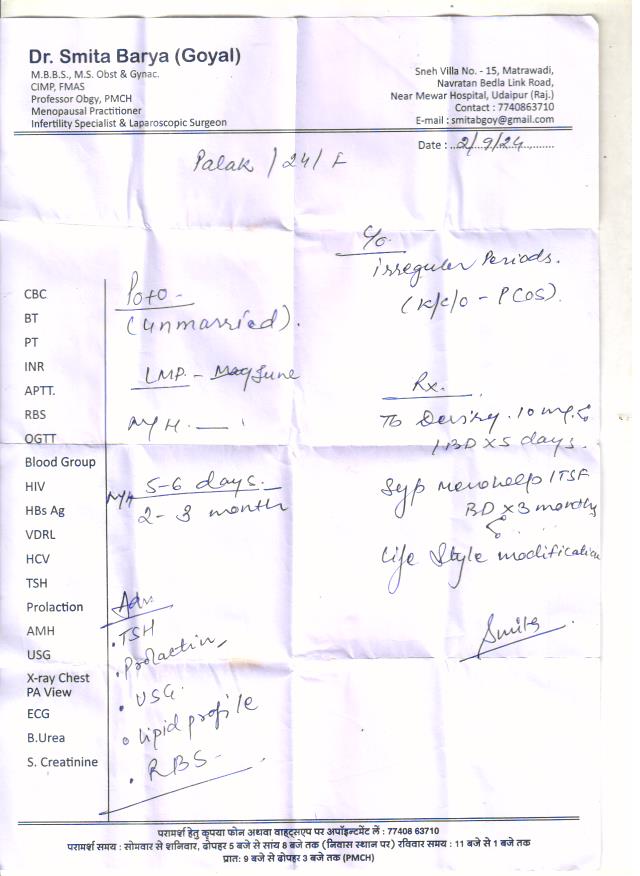 Dr. Smita Barya (Goyal)
M.B.B.S., M.S. Obst & Gynac.
CIMP, FMAS
Professor Obgy, PMCH
Menopausal Practitioner
Infertility Specialist & Laparoscopic Surgeon
Sneh Villa No. - 15, Matrawadi,
Navratan Bedla Link Road,
Near Mewar Hospital, Udaipur (Raj.)
Contact : 7740863710
E-mail : smitabgoy@gmail.com
Date : 2/9/24
Palak / 24 / F
C/o
irregular Periods.
(K/c/o - PCOS).
CBC
BT
PT
INR
APTT.
RBS
OGTT
Blood Group
HIV
HBs Ag
VDRL
HCV
TSH
Prolaction
AMH
USG
X-ray Chest
PA View
ECG
B.Urea
S. Creatinine
P0+0 -
(unmarried).
LMP - May June
M/H. — .
M/H 5-6 days.
2 - 3 month
Adv.
. TSH
. Prolactin
. USG.
lipid profile
. RBS -
Rx.
Tb 10 mg.
1 BD x 5 days.
Syp menohelp 1 TSF
BD x 3 monthly
Life Style modification
Smita
परामर्श हेतु कृपया फोन अथवा वाट्सएप पर अपॉइन्टमेंट लें : 77408 63710
परामर्श समय : सोमवार से शनिवार, दोपहर 5 बजे से सांय 8 बजे तक (निवास स्थान पर) रविवार समय : 11 बजे से 1 बजे तक
प्रातः 9 बजे से दोपहर 3 बजे तक (PMCH)